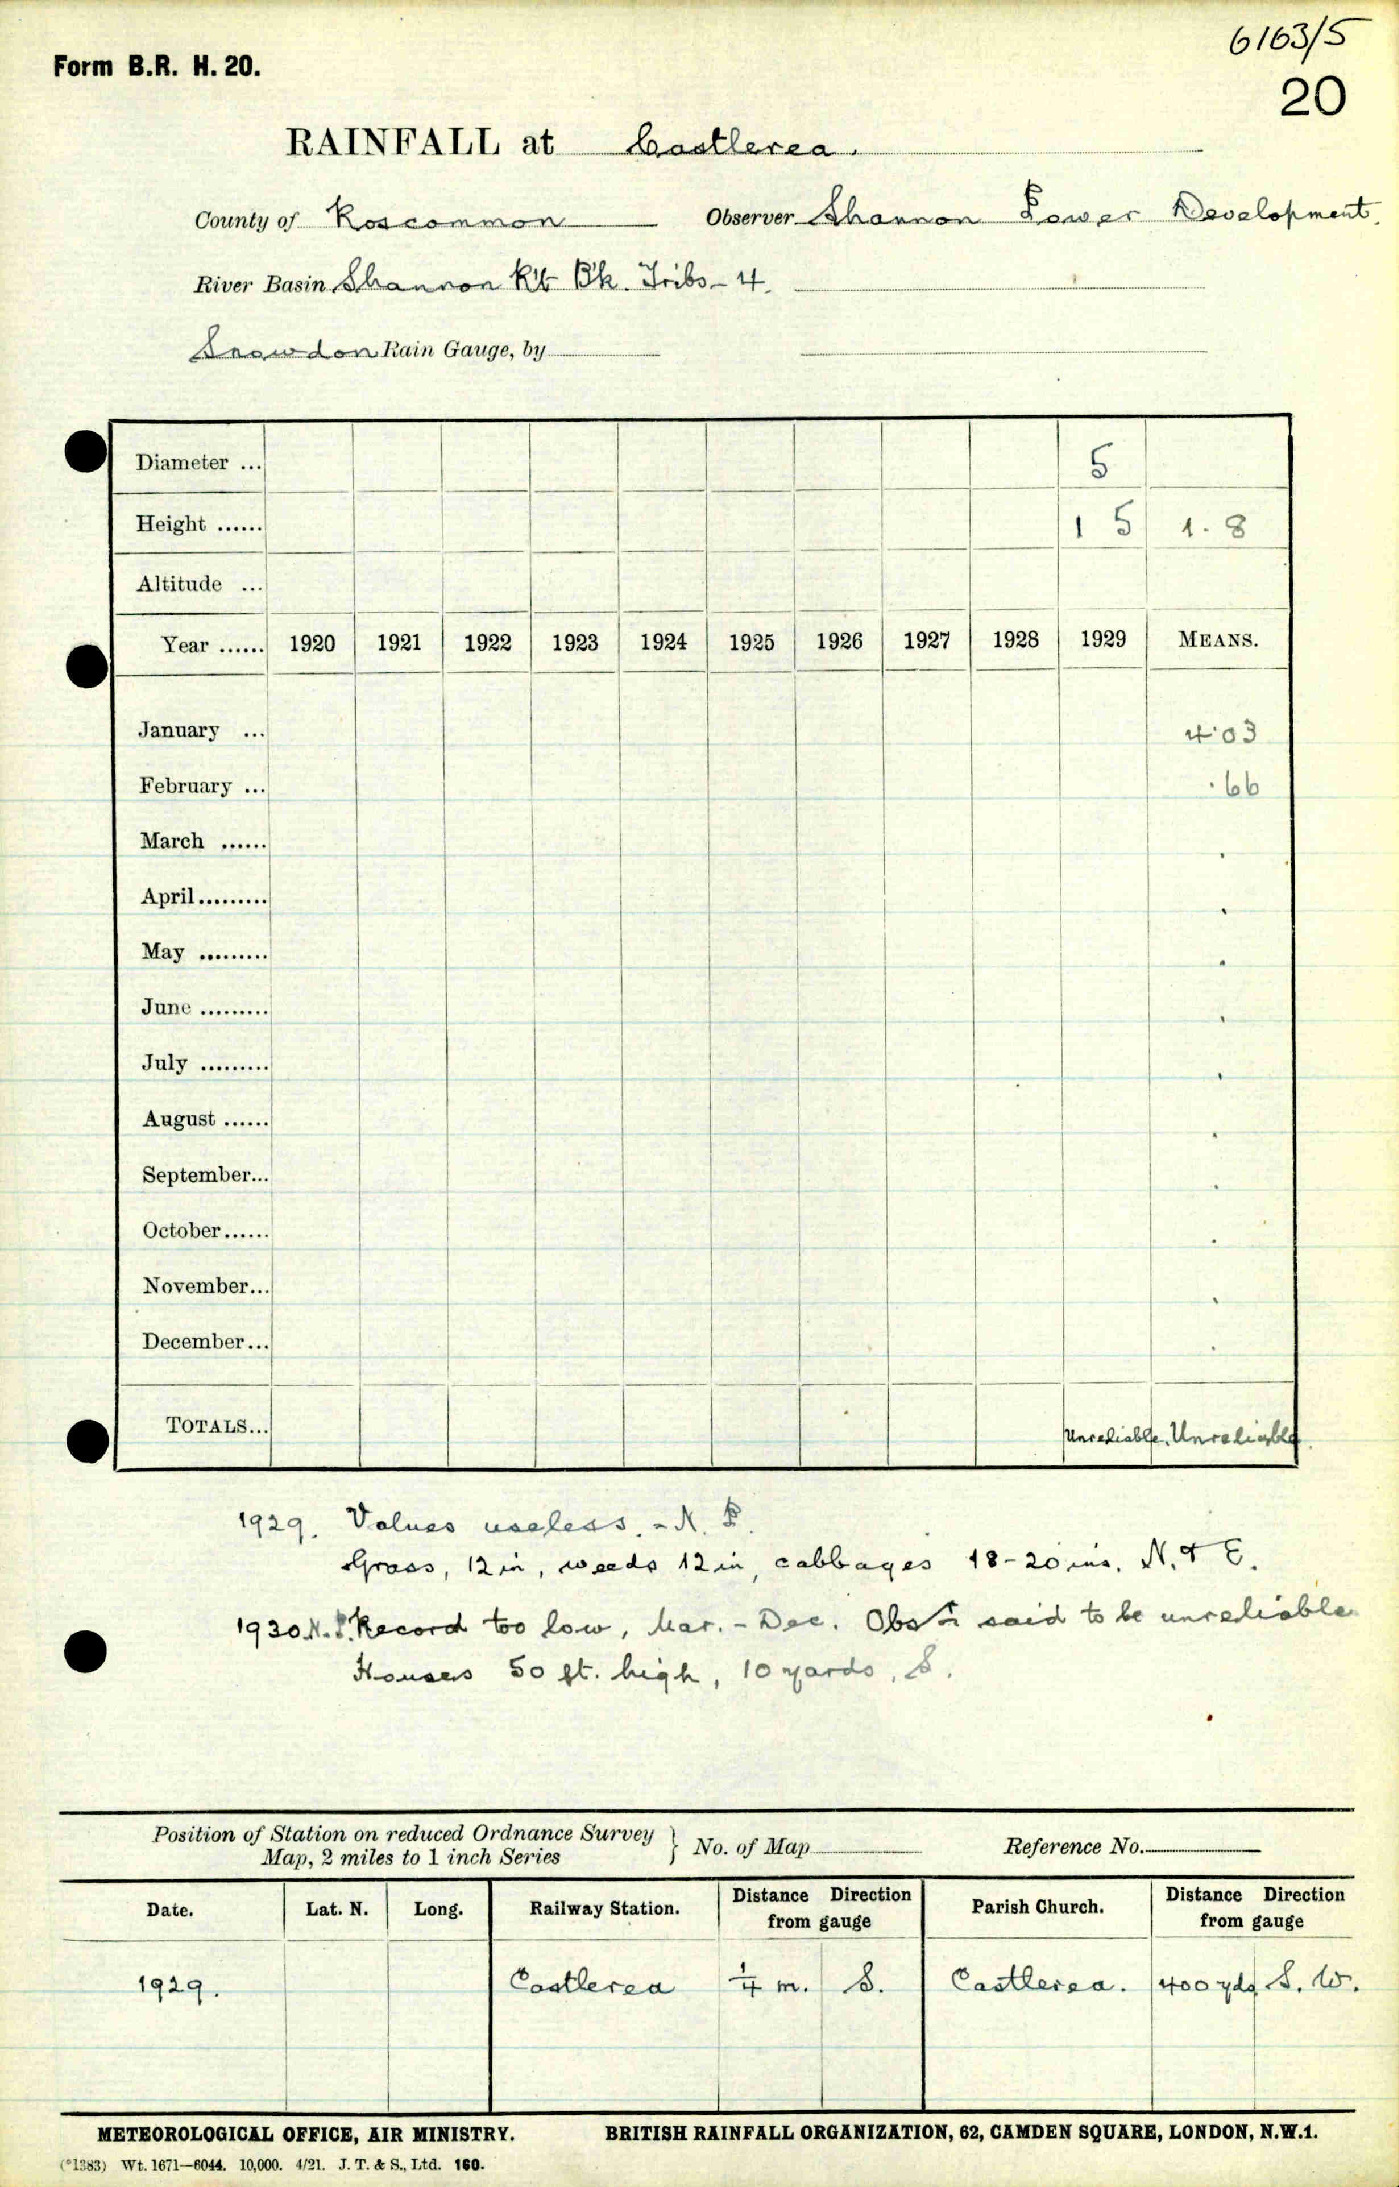 6163/5
Form B.R. H. 20.
20
RAINFALL at Castlerea.
County of Roscommon Observer Shannon Power Development.
River Basin Shannon Rt Bk. Tribs - 4.
Snowdon Rain Gauge, by
Diameter ... 5
Height ...... 1 5 1. 8
Altitude ...
Year ...... 1920 1921 1922 1923 1924 1925 1926 1927 1928 1929 MEANS.
January ... 4·03
February ... ·66
March ...... .
April......... .
May ......... .
June ......... .
July ......... .
August ...... .
September... .
October...... .
November... .
December... .
TOTALS... Unreliable. Unreliable.
1929. Values useless. - N. P.
Grass, 12 in, weeds 12 in, cabbages 18-20 ins. N. & E.
1930 N. P. Record too low, Mar. - Dec. Obsr. said to be unreliable
Houses 50 ft. high, 10 yards, S.
Position of Station on reduced Ordnance Survey
Map, 2 miles to 1 inch Series } No. of Map Reference No.
Date. Lat. N. Long. Railway Station. Distance Direction from gauge Parish Church. Distance Direction from gauge
1929. Castlerea 1/4 m. S. Castlerea. 400 yds. S. W.
METEOROLOGICAL OFFICE, AIR MINISTRY. BRITISH RAINFALL ORGANIZATION, 62, CAMDEN SQUARE, LONDON, N.W.1.
(*1383) Wt. 1671—6044. 10,000. 4/21. J. T. & S., Ltd. 160.